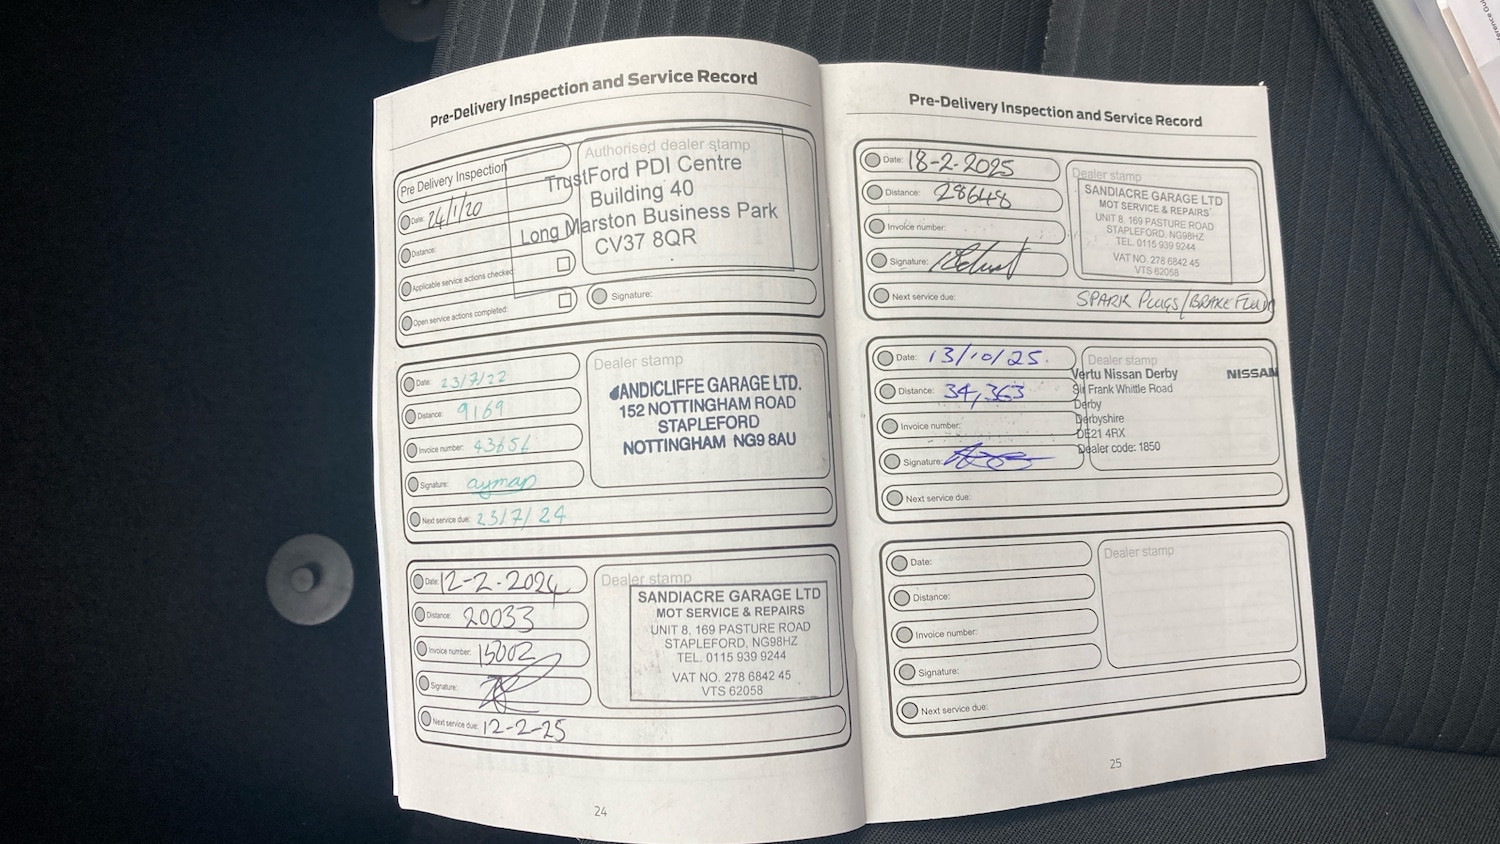 Pre-Delivery Inspection and Service Record
Pre Delivery Inspection
Date: 24/1/20
Distance:
Applicable service actions checked:
Open service actions completed:
Authorised dealer stamp
TrustFord PDI Centre
Building 40
Long Marston Business Park
CV37 8QR
Signature:
Date: 23/7/22
Distance: 9169
Invoice number:
Signature: ayman
Next service due: 23/7/24
Dealer stamp
SANDICLIFFE GARAGE LTD.
152 NOTTINGHAM ROAD
STAPLEFORD
NOTTINGHAM NG9 8AU
Date: 12-2-2024
Distance: 20033
Invoice number: 15002
Signature:
Next service due: 12-2-25
Dealer stamp
SANDIACRE GARAGE LTD
MOT SERVICE & REPAIRS
UNIT 8, 169 PASTURE ROAD
STAPLEFORD, NG98HZ
TEL. 0115 939 9244
VAT NO. 278 6842 45
VTS 62058
24
Pre-Delivery Inspection and Service Record
Date: 18-2-2025
Distance: 28648
Invoice number:
Signature:
Next service due: SPARK PLUGS/BRAKE FLUID
Dealer stamp
SANDIACRE GARAGE LTD
MOT SERVICE & REPAIRS
UNIT 8, 169 PASTURE ROAD
STAPLEFORD, NG98HZ
TEL. 0115 939 9244
VAT NO. 278 6842 45
VTS 62058
Date: 13/10/25.
Distance: 34,363
Invoice number:
Signature:
Next service due:
Dealer stamp
Vertu Nissan Derby NISSAN
Sir Frank Whittle Road
Derby
Derbyshire
DE21 4RX
Dealer code: 1850
Date:
Distance:
Invoice number:
Signature:
Next service due:
Dealer stamp
25